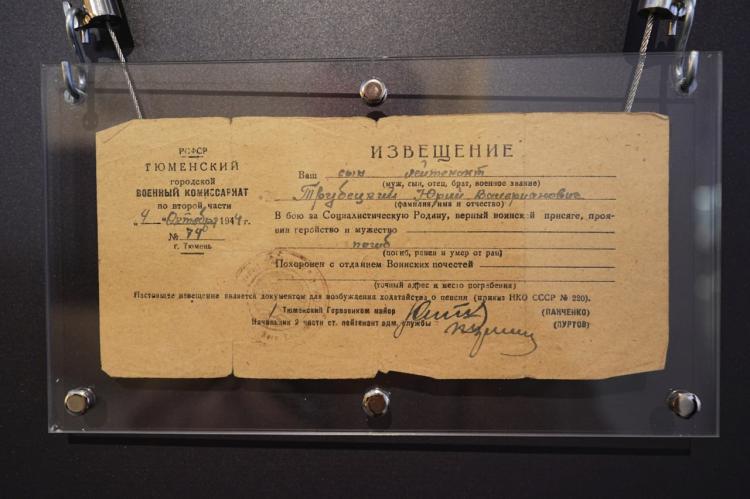 РСФСР
ТЮМЕНСКИЙ
городской
ВОЕННЫЙ КОМИССАРИАТ
по второй части
"4" Октября 1944 г.
№ 74
г. Тюмень
ИЗВЕЩЕНИЕ
Ваш сын лейтенант
(муж, сын, отец, брат, военное звание)
Трубецкий Юрий Валерианович
(фамилия, имя и отчество)
В бою за Социалистическую Родину, верный воинской присяге, проя-
вив геройство и мужество
погиб
(погиб, ранен и умер от ран)
Похоронен с отданием Воинских почестей
(точный адрес и место погребения)
Настоящее извещение является документом для возбуждения ходатайства о пенсии (приказ НКО СССР № 220).
Тюменский Горвоенком майор (ПАНЧЕНКО)
Начальник 2 части ст. лейтенант адм. службы (ПУРТОВ)